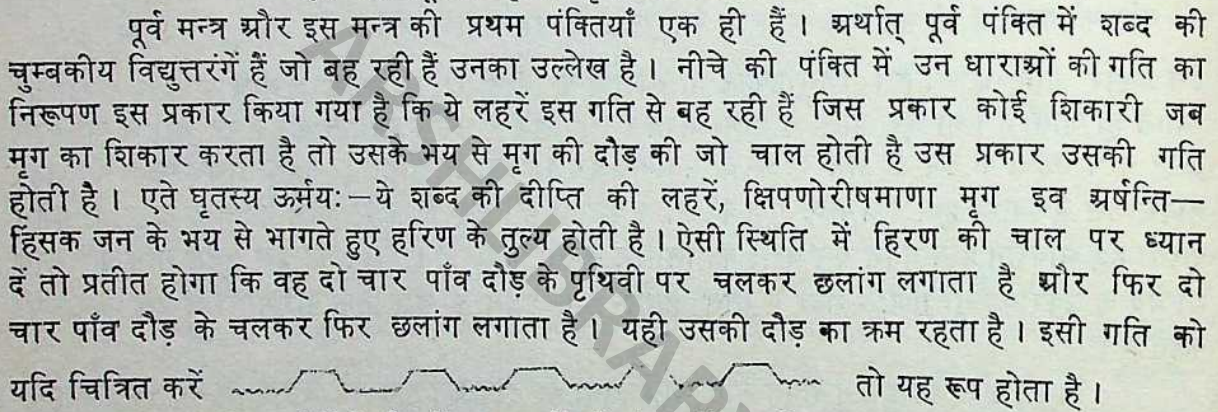 पूर्व मन्त्र और इस मन्त्र की प्रथम पंक्तियाँ एक ही हैं । अर्थात् पूर्व पंक्ति में शब्द की
चुम्बकीय विद्युत्तरंगें हैं जो बह रही हैं उनका उल्लेख है । नीचे की पंक्ति में उन धाराओं की गति का
निरूपण इस प्रकार किया गया है कि ये लहरें इस गति से बह रही हैं जिस प्रकार कोई शिकारी जब
मृग का शिकार करता है तो उसके भय से मृग की दौड़ की जो चाल होती है उस प्रकार उसकी गति
होती है । एते घृतस्य ऊर्मयः—ये शब्द की दीप्ति की लहरें, क्षिपणोरीषमाणा मृग इव अर्षन्ति—
हिंसक जन के भय से भागते हुए हरिण के तुल्य होती है । ऐसी स्थिति में हिरण की चाल पर ध्यान
दें तो प्रतीत होगा कि वह दो चार पाँव दौड़ के पृथिवी पर चलकर छलांग लगाता है और फिर दो
चार पाँव दौड़ के चलकर फिर छलांग लगाता है । यही उसकी दौड़ का क्रम रहता है । इसी गति को
यदि चित्रित करें तो यह रूप होता है ।
ARSHLIBRARY